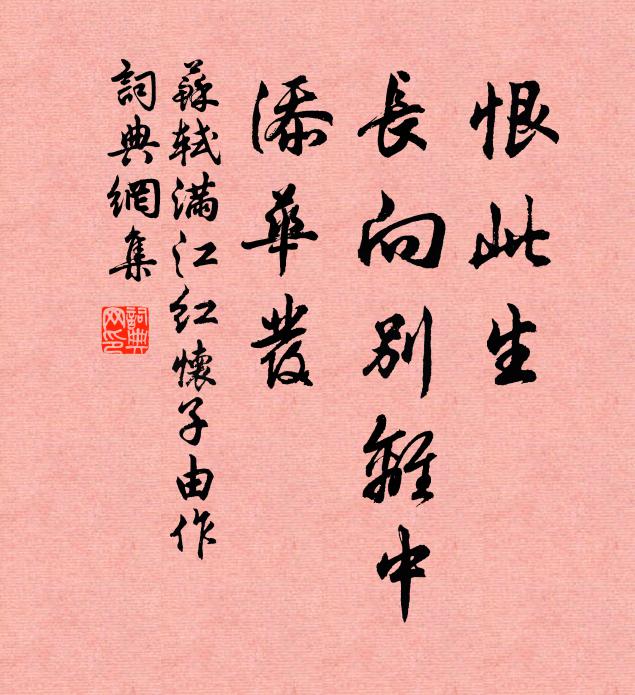 恨此生
長向別離中
添華發
蘇軾滿江紅懷子由作
詞典網集
詞典网印